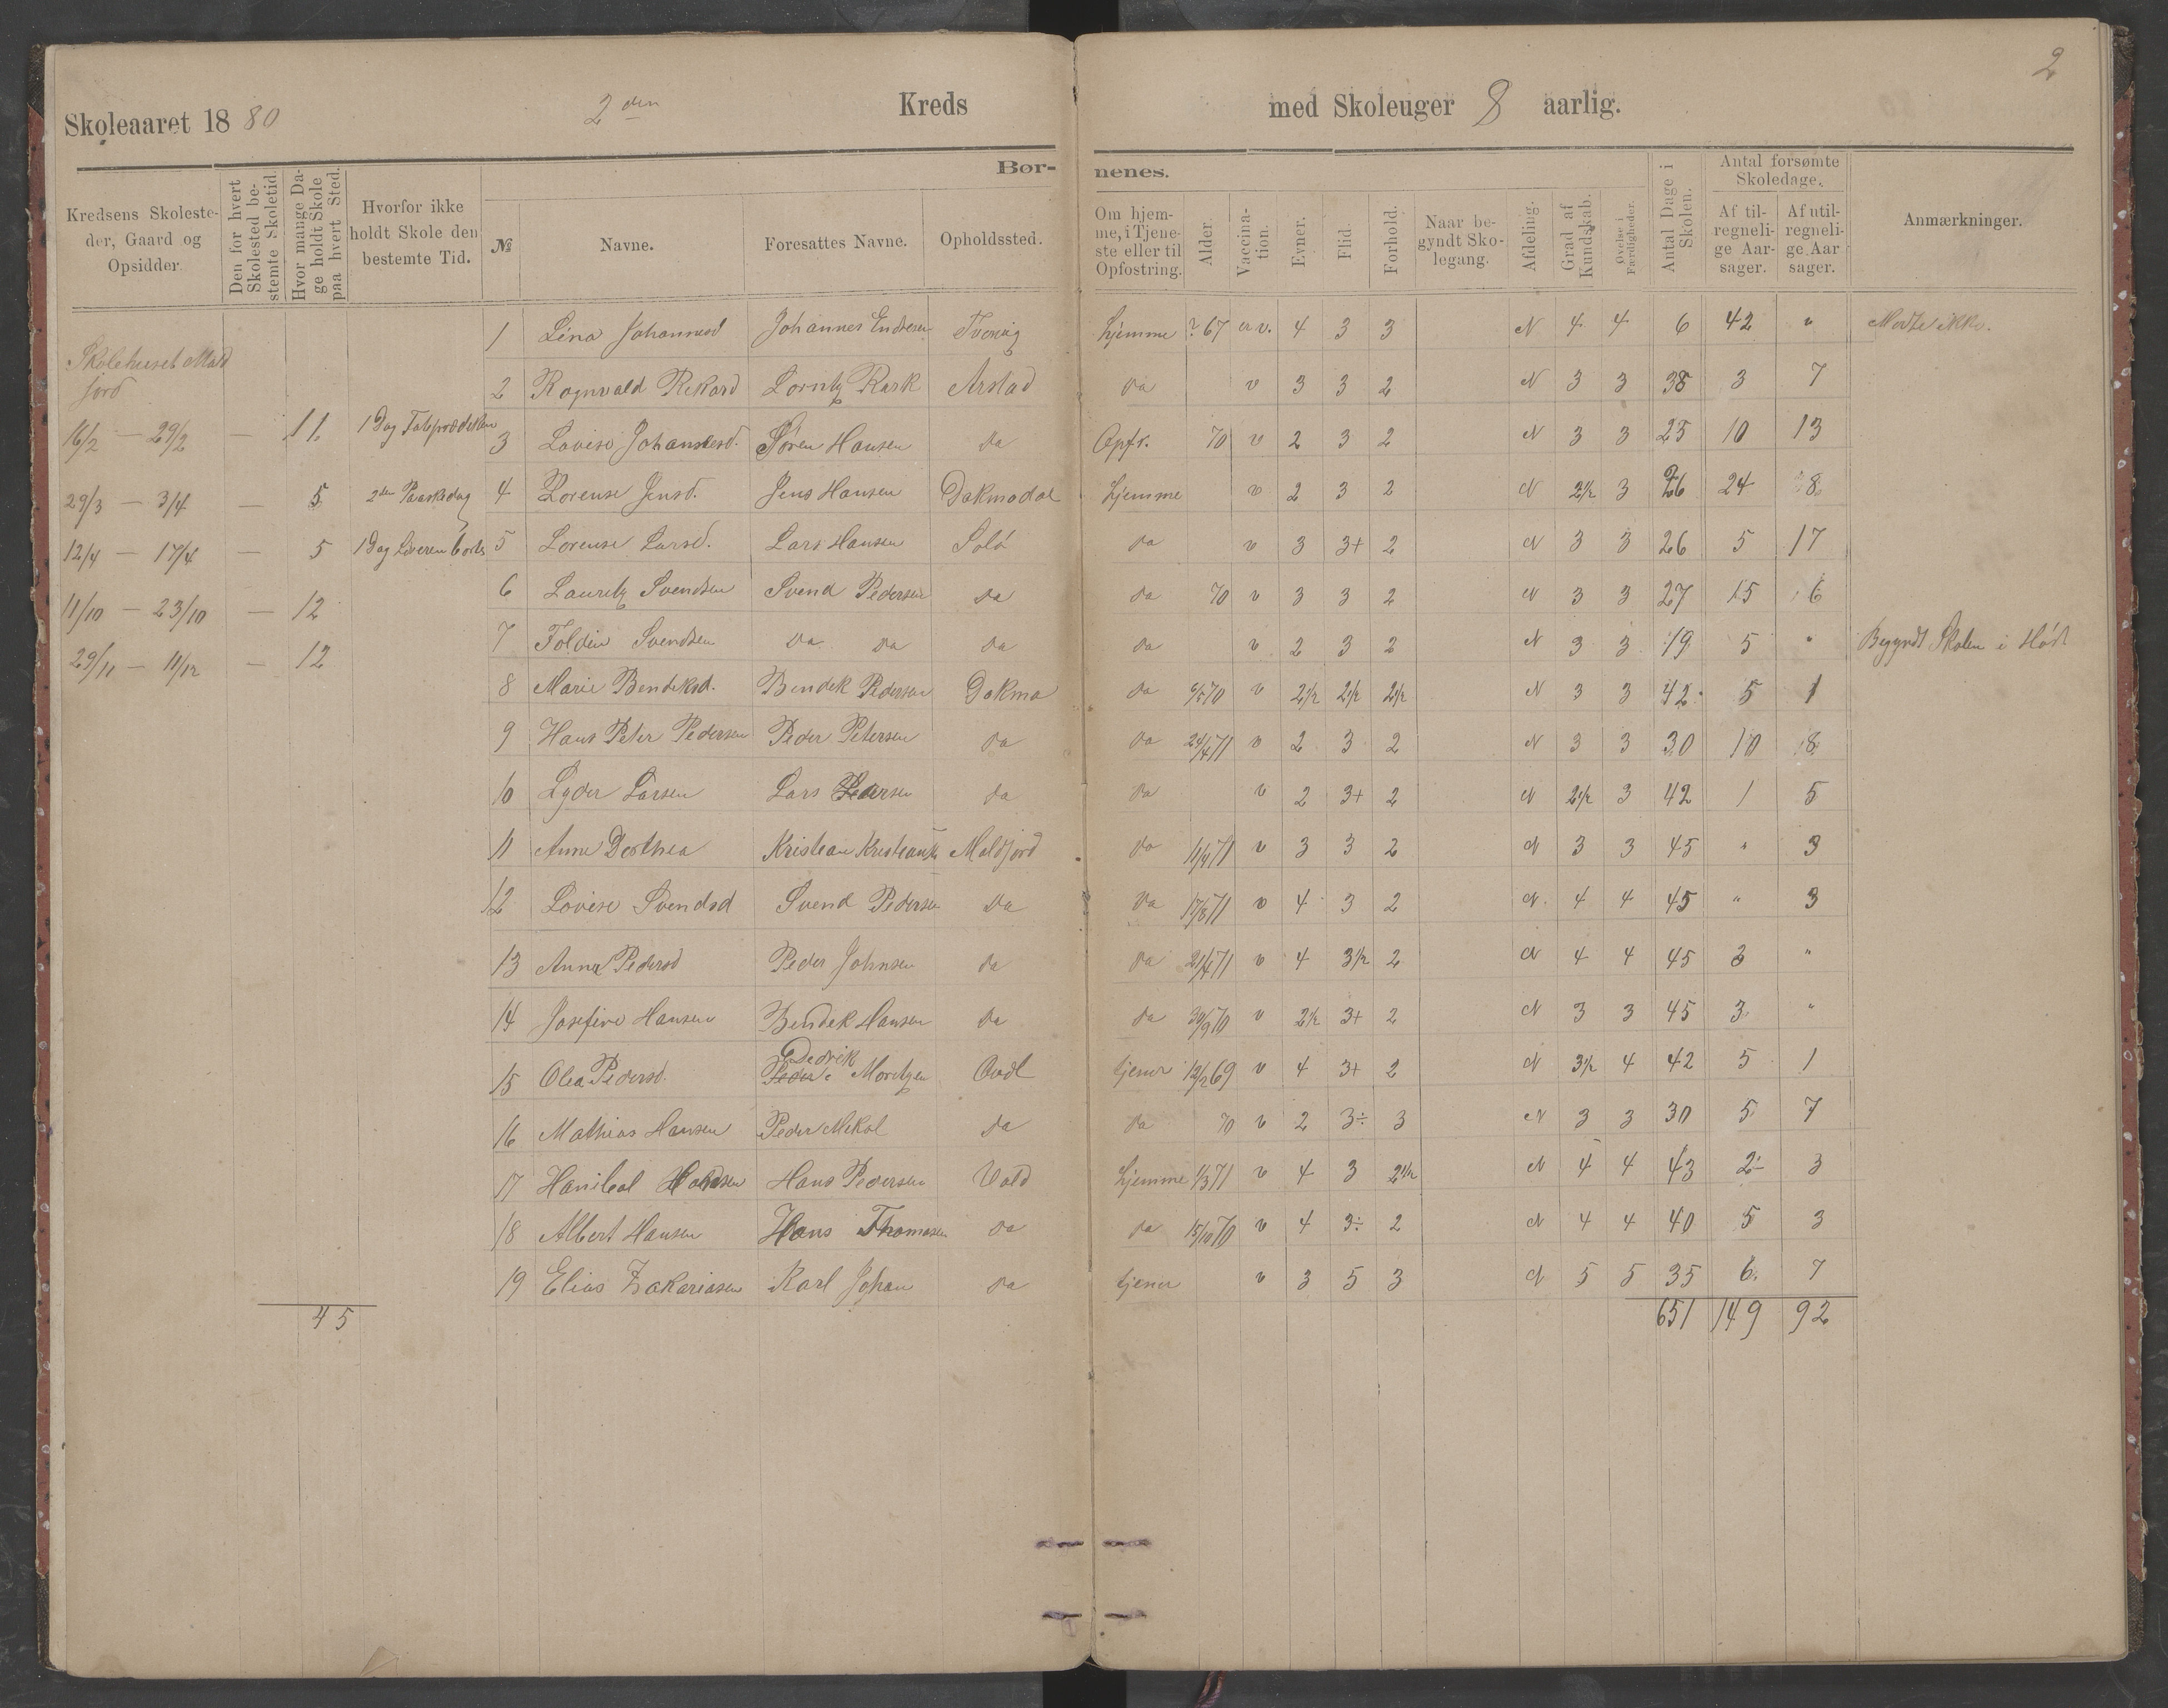 2
Skoleaaret 1880 2den Kreds med Skoleuger 8 aarlig.
Kredsens Skolesteder, Gaard og Opsidder.
Den for hvert Skolested bestemte Skoletid.
Hvor mange Dage holdt Skole paa hvert Sted.
Hvorfor ikke holdt Skole den bestemte Tid.
Børnenes.
№ Navne. Foresattes Navne. Opholdssted.
Om hjemme, i Tjeneste eller til Opfostring.
Alder. Vaccination. Evner. Flid. Forhold.
Naar begyndt Skolegang.
Afdeling. Grad af Kundskab. Øvelse i Færdigheder.
Antal Dage i Skolen.
Antal forsømte Skoledage.
Af tilregnelige Aarsager. Af utilregnelige Aarsager.
Anmærkninger.
Skolehuset Mald
jord
16/2 — 29/2 — 11.
29/3 — 3/4 — 5 2den Paaskedag
12/4 — 17/4 — 5 1 Dag Læreren borte
11/10 — 23/10 — 12
29/11 — 11/12 — 12
45
1 Lina Johannesd Johannes Endresen Tvervig hjemme ? 67 er v. 4 3 3 N 4 4 6 42 " Mødte ikke.
2 Rognvald Rikard Lorntz Rask Arstad da v 3 3 2 N 3 3 38 3 7
3 Lovise Johannesd. Søren Hansen da Opfr. 70 v 2 3 2 N 3 3 25 10 13
4 Lorense Jensd. Jens Hansen Dakmadal hjemme v 2 3 2 N 2½ 3 26 24 8
5 Lorense Larsd. Lars Hansen Solø da v 3 3+ 2 N 3 3 26 5 17
6 Lauritz Svendsen Svend Pedersen da da 70 v 3 3 2 N 3 3 27 15 6
7 Foldin Svendsen da da da da v 2 3 2 N 3 3 19 5 " Begyndt Skolen i Høst
8 Marie Bendiksd. Bendik Pedersen Dakma da 6/5 70 v 2½ 2½ 2½ N 3 3 42 5 1
9 Hans Peter Pedersen Peder Petersen da da 24/4 71 v 2 3 2 N 3 3 30 10 8
10 Lyder Larsen Lars Pedersen da da v 2 3+ 2 N 2½ 3 42 1 5
11 Anne Dorthea Kristean Kristeans Maldjord da 11/4 71 v 3 3 2 N 3 3 45 " 3
12 Lovise Svendsd Svend Pedersen da da 17/8 71 v 4 3 2 N 4 4 45 " 3
13 Anna Pedersd Peder Johnsen da da 21/4 71 v 4 3½ 2 N 4 4 45 3 "
14 Josefine Hansen Bendek Hansen da da 30/9 70 v 2½ 3+ 2 N 3 3 45 3 "
Dedrik
15 Olea Pedersd. Peder Moritzen tjener 12/2 69 v 4 3+ 2 N 3½ 4 42 5 1
16 Mathias Hansen Peder Mekal da da 70 v 2 3÷ 3 N 3 3 30 5 7
17 Hanibal Hansen Hans Pedersen Vold hjemme 1/3 71 v 4 3 2½ N 4 4 43 2 3
18 Albert Hansen Hans Thomasen da da 15/10 70 v 4 3÷ 2 N 4 4 40 5 3
19 Elias Zakariasen Karl Johan da tjener v 3 5 3 N 5 5 35 6 7
651 149 92